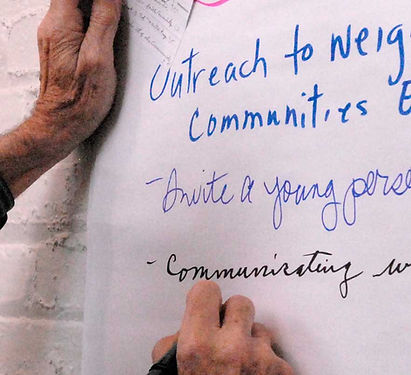 Outreach to Neig
Communities E
- Invite a young perse
- Communicating w